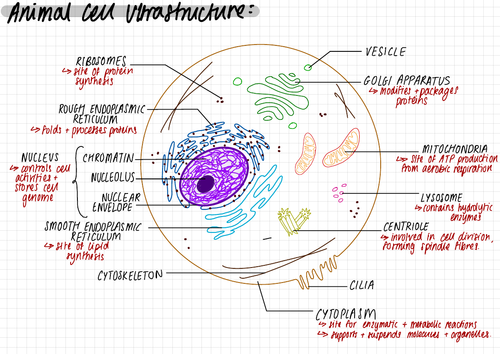 Animal Cell Ultrastructure:
RIBOSOMES
↳ site of protein
synthesis
ROUGH ENDOPLASMIC
RETICULUM
↳ folds + processes proteins
NUCLEUS
↳ controls cell
activities +
stores cell
genome
CHROMATIN
NUCLEOLUS
NUCLEAR
ENVELOPE
SMOOTH ENDOPLASMIC
RETICULUM
↳ site of lipid
synthesis
CYTOSKELETON
VESICLE
GOLGI APPARATUS
↳ modifies + packages
proteins
MITOCHONDRIA
↳ site of ATP production
from aerobic respiration
LYSOSOME
↳ contains hydrolytic
enzymes
CENTRIOLE
↳ involved in cell division,
forming spindle fibres.
CILIA
CYTOPLASM
↳ site for enzymatic + metabolic reactions
↳ supports + suspends molecules + organelles.